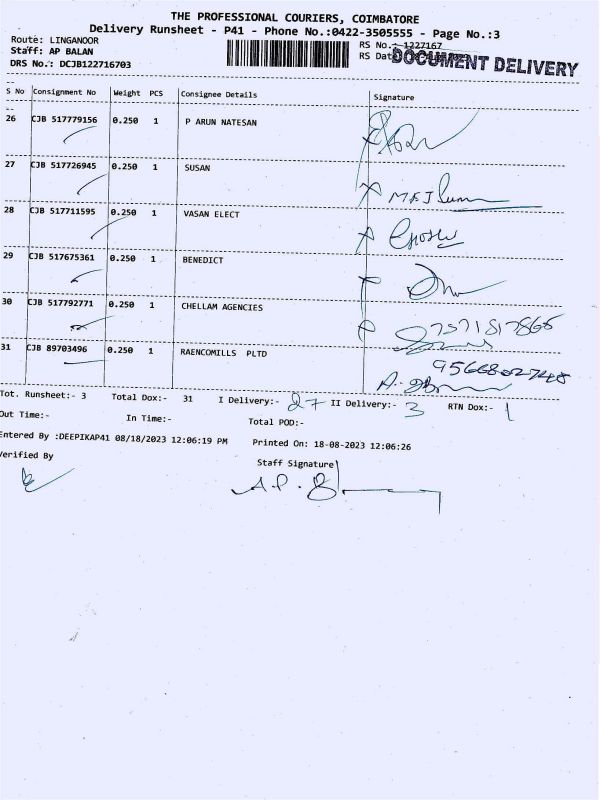 THE PROFESSIONAL COURIERS, COIMBATORE
Delivery Runsheet - P41 - Phone No.:0422-3505555 - Page No.:3
Route: LINGANOOR RS No.: 1227167
Staff: AP BALAN RS Dat
DOCUMENT DELIVERY
DRS No.: DCJB122716703
S No Consignment No Weight PCS Consignee Details Signature
26 CJB 517779156 0.250 1 P ARUN NATESAN
27 CJB 517726945 0.250 1 SUSAN
28 CJB 517711595 0.250 1 VASAN ELECT
29 CJB 517675361 0.250 1 BENEDICT
30 CJB 517792771 0.250 1 CHELLAM AGENCIES
31 CJB 89703496 0.250 1 RAENCOMILLS PLTD
Tot. Runsheet:- 3 Total Dox:- 31 I Delivery:- 27 II Delivery:- 3 RTN Dox:- 1
Out Time:- In Time:- Total POD:-
Entered By :DEEPIKAP41 08/18/2023 12:06:19 PM Printed On: 18-08-2023 12:06:26
Verified By Staff Signature
A.P. B